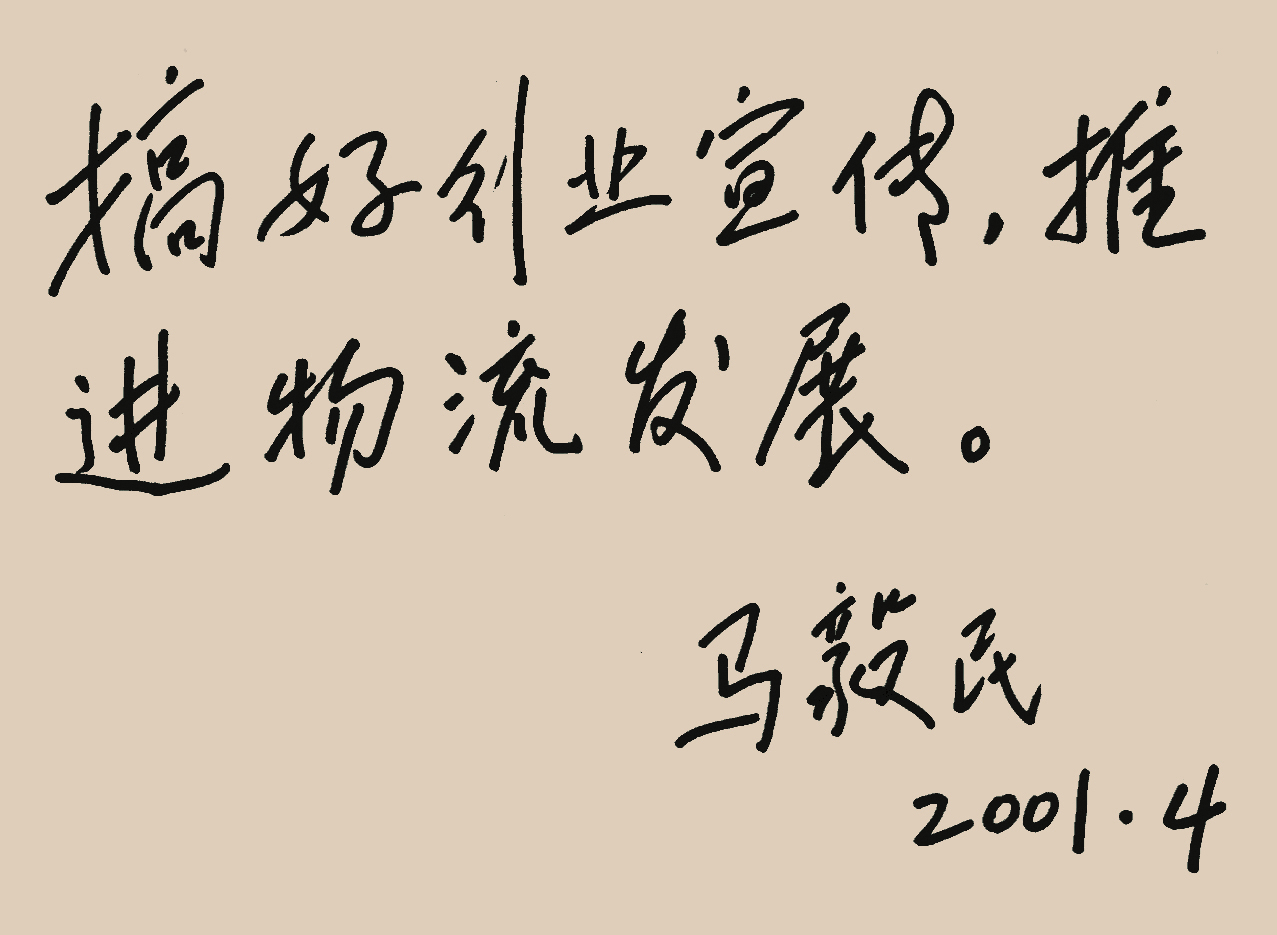 搞好创业宣传,推
进物流发展。
马毅民
2001.4